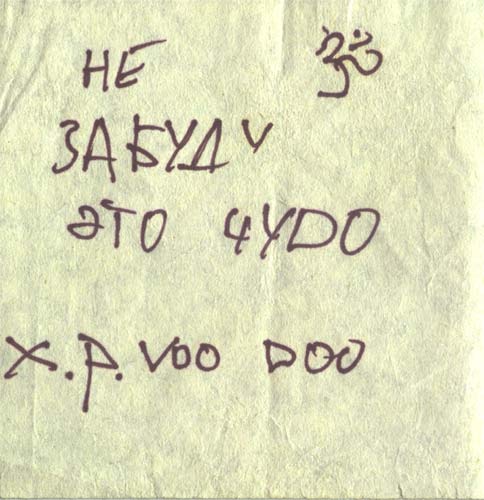 НЕ ॐ
ЗАБУДУ
ЭТО ЧУDО
Х.Р. VOO DOO